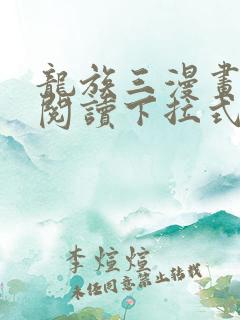 龍族三漫畫
閱讀下拉式
李煊煊
未經同意禁止轉載